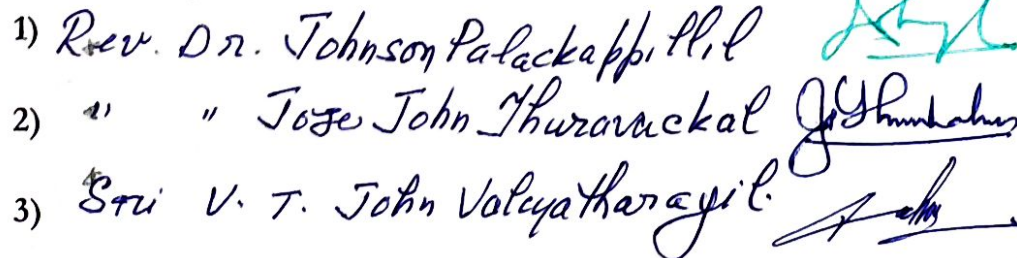 1) Rev. Dr. Johnson Palackappillil
2) " " Jose John Thuravackal
3) Sri V. T. John Valiyatharayil.